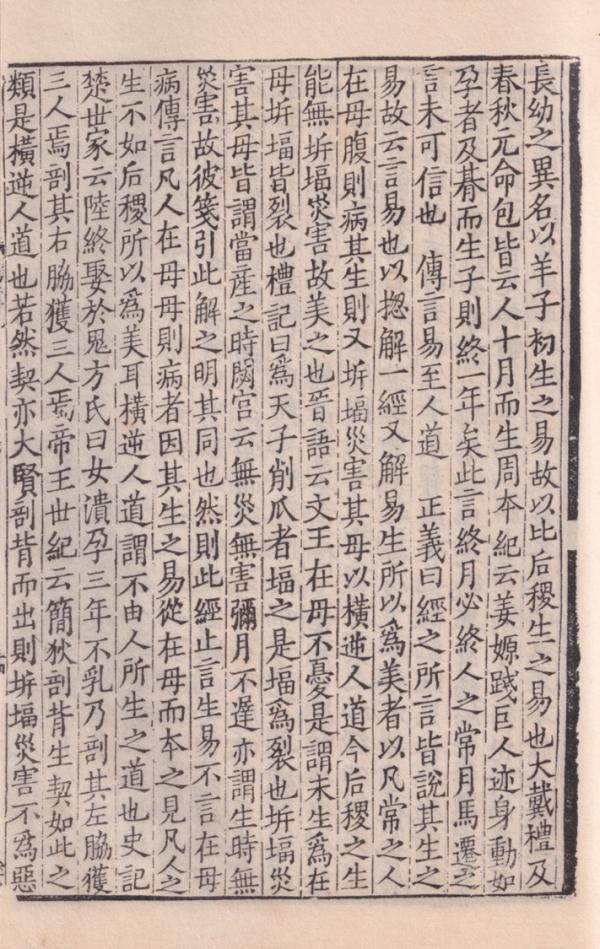 長幼之異名以羊子初生之易故以比后稷生之易也大戴禮及
春秋元命包皆云人十月而生周本紀云姜嫄踐巨人迹身動如
孕者及朞而生子則終一年矣此言終月必終人之常月馬遷之
言未可信也　傳言易至人道　正義曰經之所言皆說其生之
易故云言易也以揔解一經又解易生所以爲美者以凡常之人
在母腹則病其生則又坼堛災害其母以橫逆人道今后稷之生
能無坼堛災害故美之也晋語云文王在母不憂是謂未生爲在
母坼堛皆裂也禮記曰爲天子削瓜者堛之是堛爲裂也坼堛災
害其母皆謂當産之時閟宮云無災無害彌月不遲亦謂生時無
災害故彼箋引此解之明其同也然則此經止言生易不言在母
病傳言凡人在母母則病者因其生之易從在母而本之見凡人之
生不如后稷所以爲美耳橫逆人道謂不由人所生之道也史記
楚世家云陸終娶於鬼方氏曰女潰孕三年不乳乃剖其左脇獲
三人焉剖其右脇獲三人焉帝王世紀云簡狄剖背生契如此之
類是橫逆人道也若然契亦大賢剖背而出則坼堛災害不爲惡